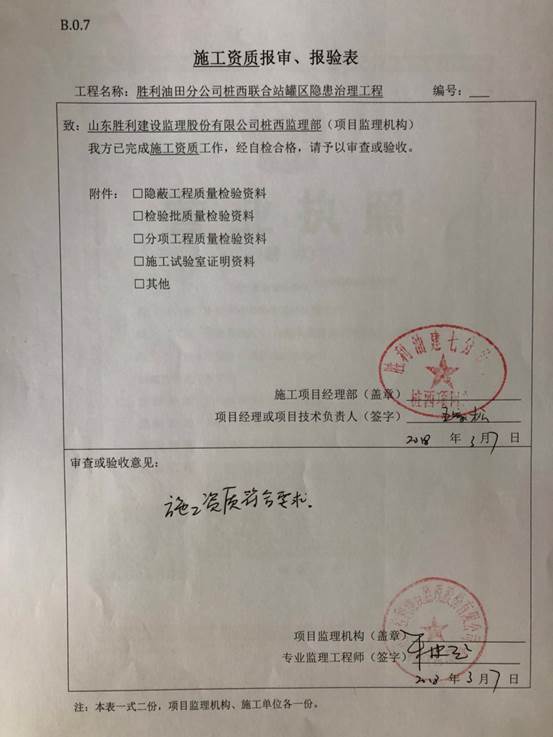 B.0.7
施工资质报审、报验表
工程名称：胜利油田分公司桩西联合站罐区隐患治理工程 编号：
致：山东胜利建设监理股份有限公司桩西监理部（项目监理机构）
我方已完成施工资质工作，经自检合格，请予以审查或验收。
附件：□隐蔽工程质量检验资料
□检验批质量检验资料
□分项工程质量检验资料
□施工试验室证明资料
□其他
胜利油建七分
桩西项目
施工项目经理部（盖章）
项目经理或项目技术负责人（签字）
2018 年 3月7日
审查或验收意见：
施工资质符合要求.
项目监理机构（盖章）
专业监理工程师（签字）
2018 年 3月7日
注：本表一式二份，项目监理机构、施工单位各一份。